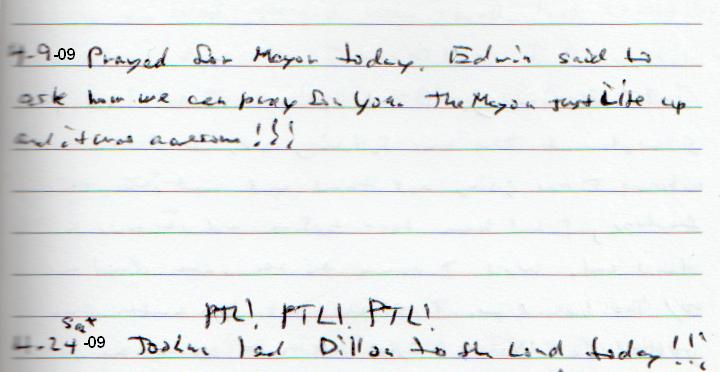 4-9-09 Prayed for Mayor today. Edwin said to
ask how we can pray for you. The Mayor just Lite up
and it was awesome!!!
PTL! PTL! PTL!
Sat
4-24-09 Joshua lead Dillon to the Lord today!!!